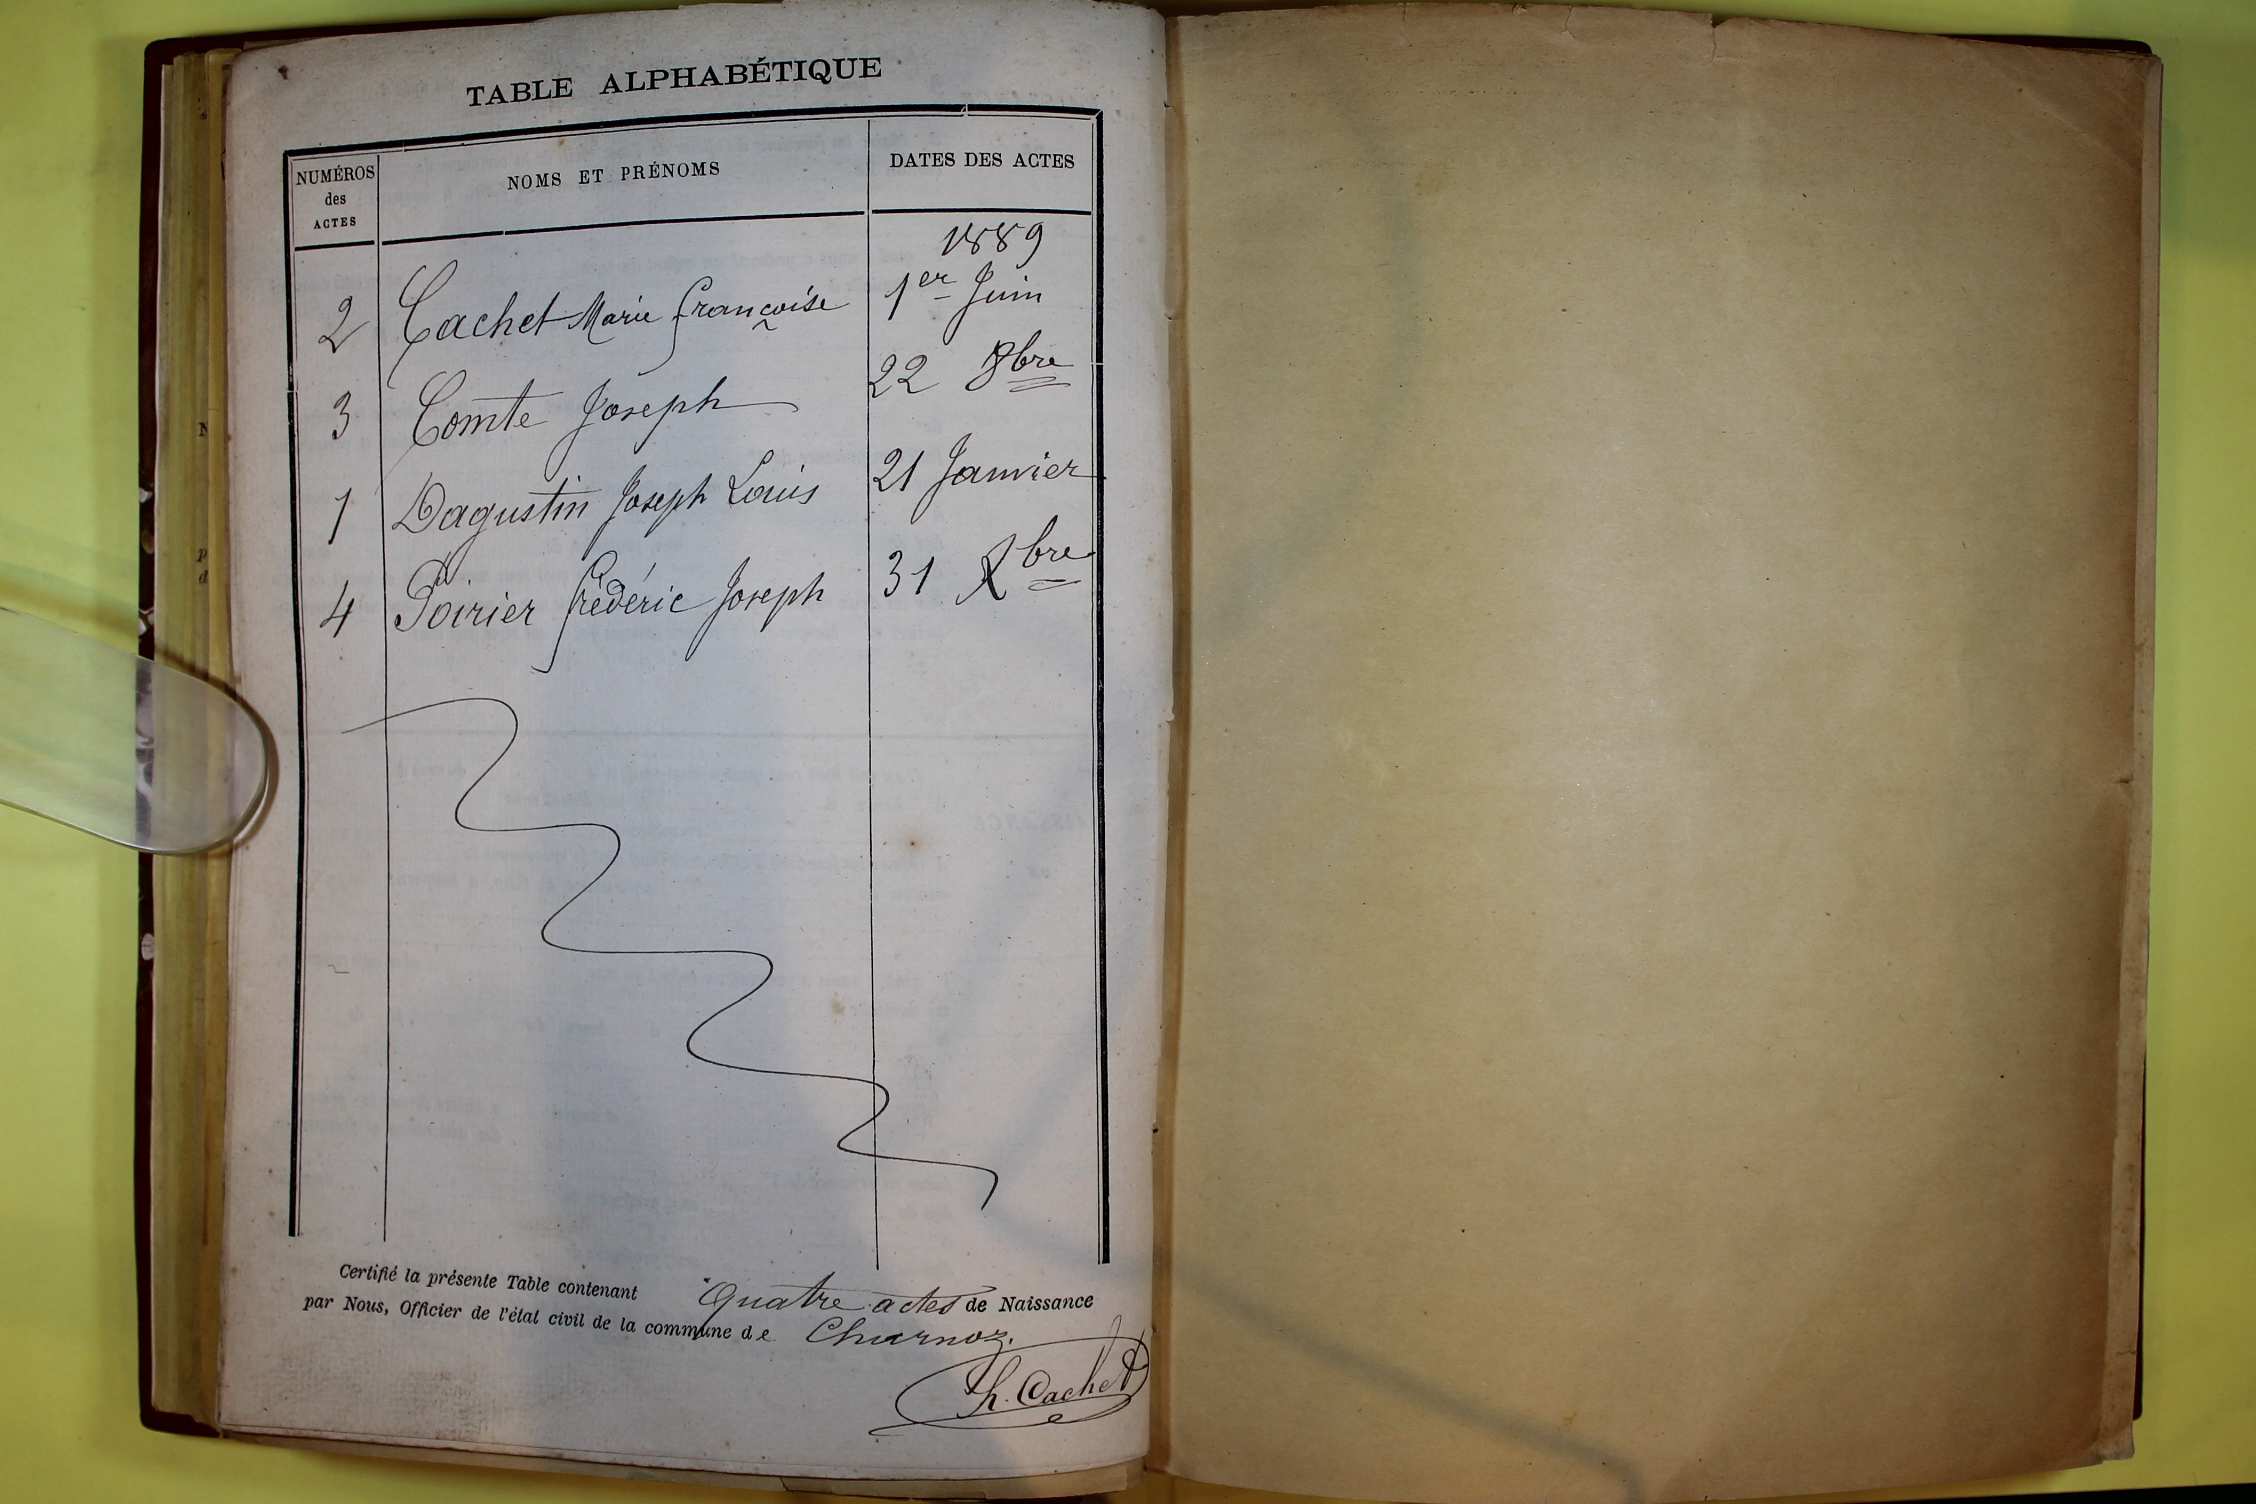 TABLE ALPHABÉTIQUE
NUMÉROS des ACTES NOMS ET PRÉNOMS DATES DES ACTES
1889
2 Cachet Marie Françoise 1er Juin
3 Comte Joseph 22 8bre
1 Dagustin Joseph Louis 21 Janvier
4 Poirier Frédéric Joseph 31 Xbre
Certifié la présente Table contenant Quatre actes de Naissance
par Nous, Officier de l'état civil de la commune de Charnoz.
Ph. Cachet